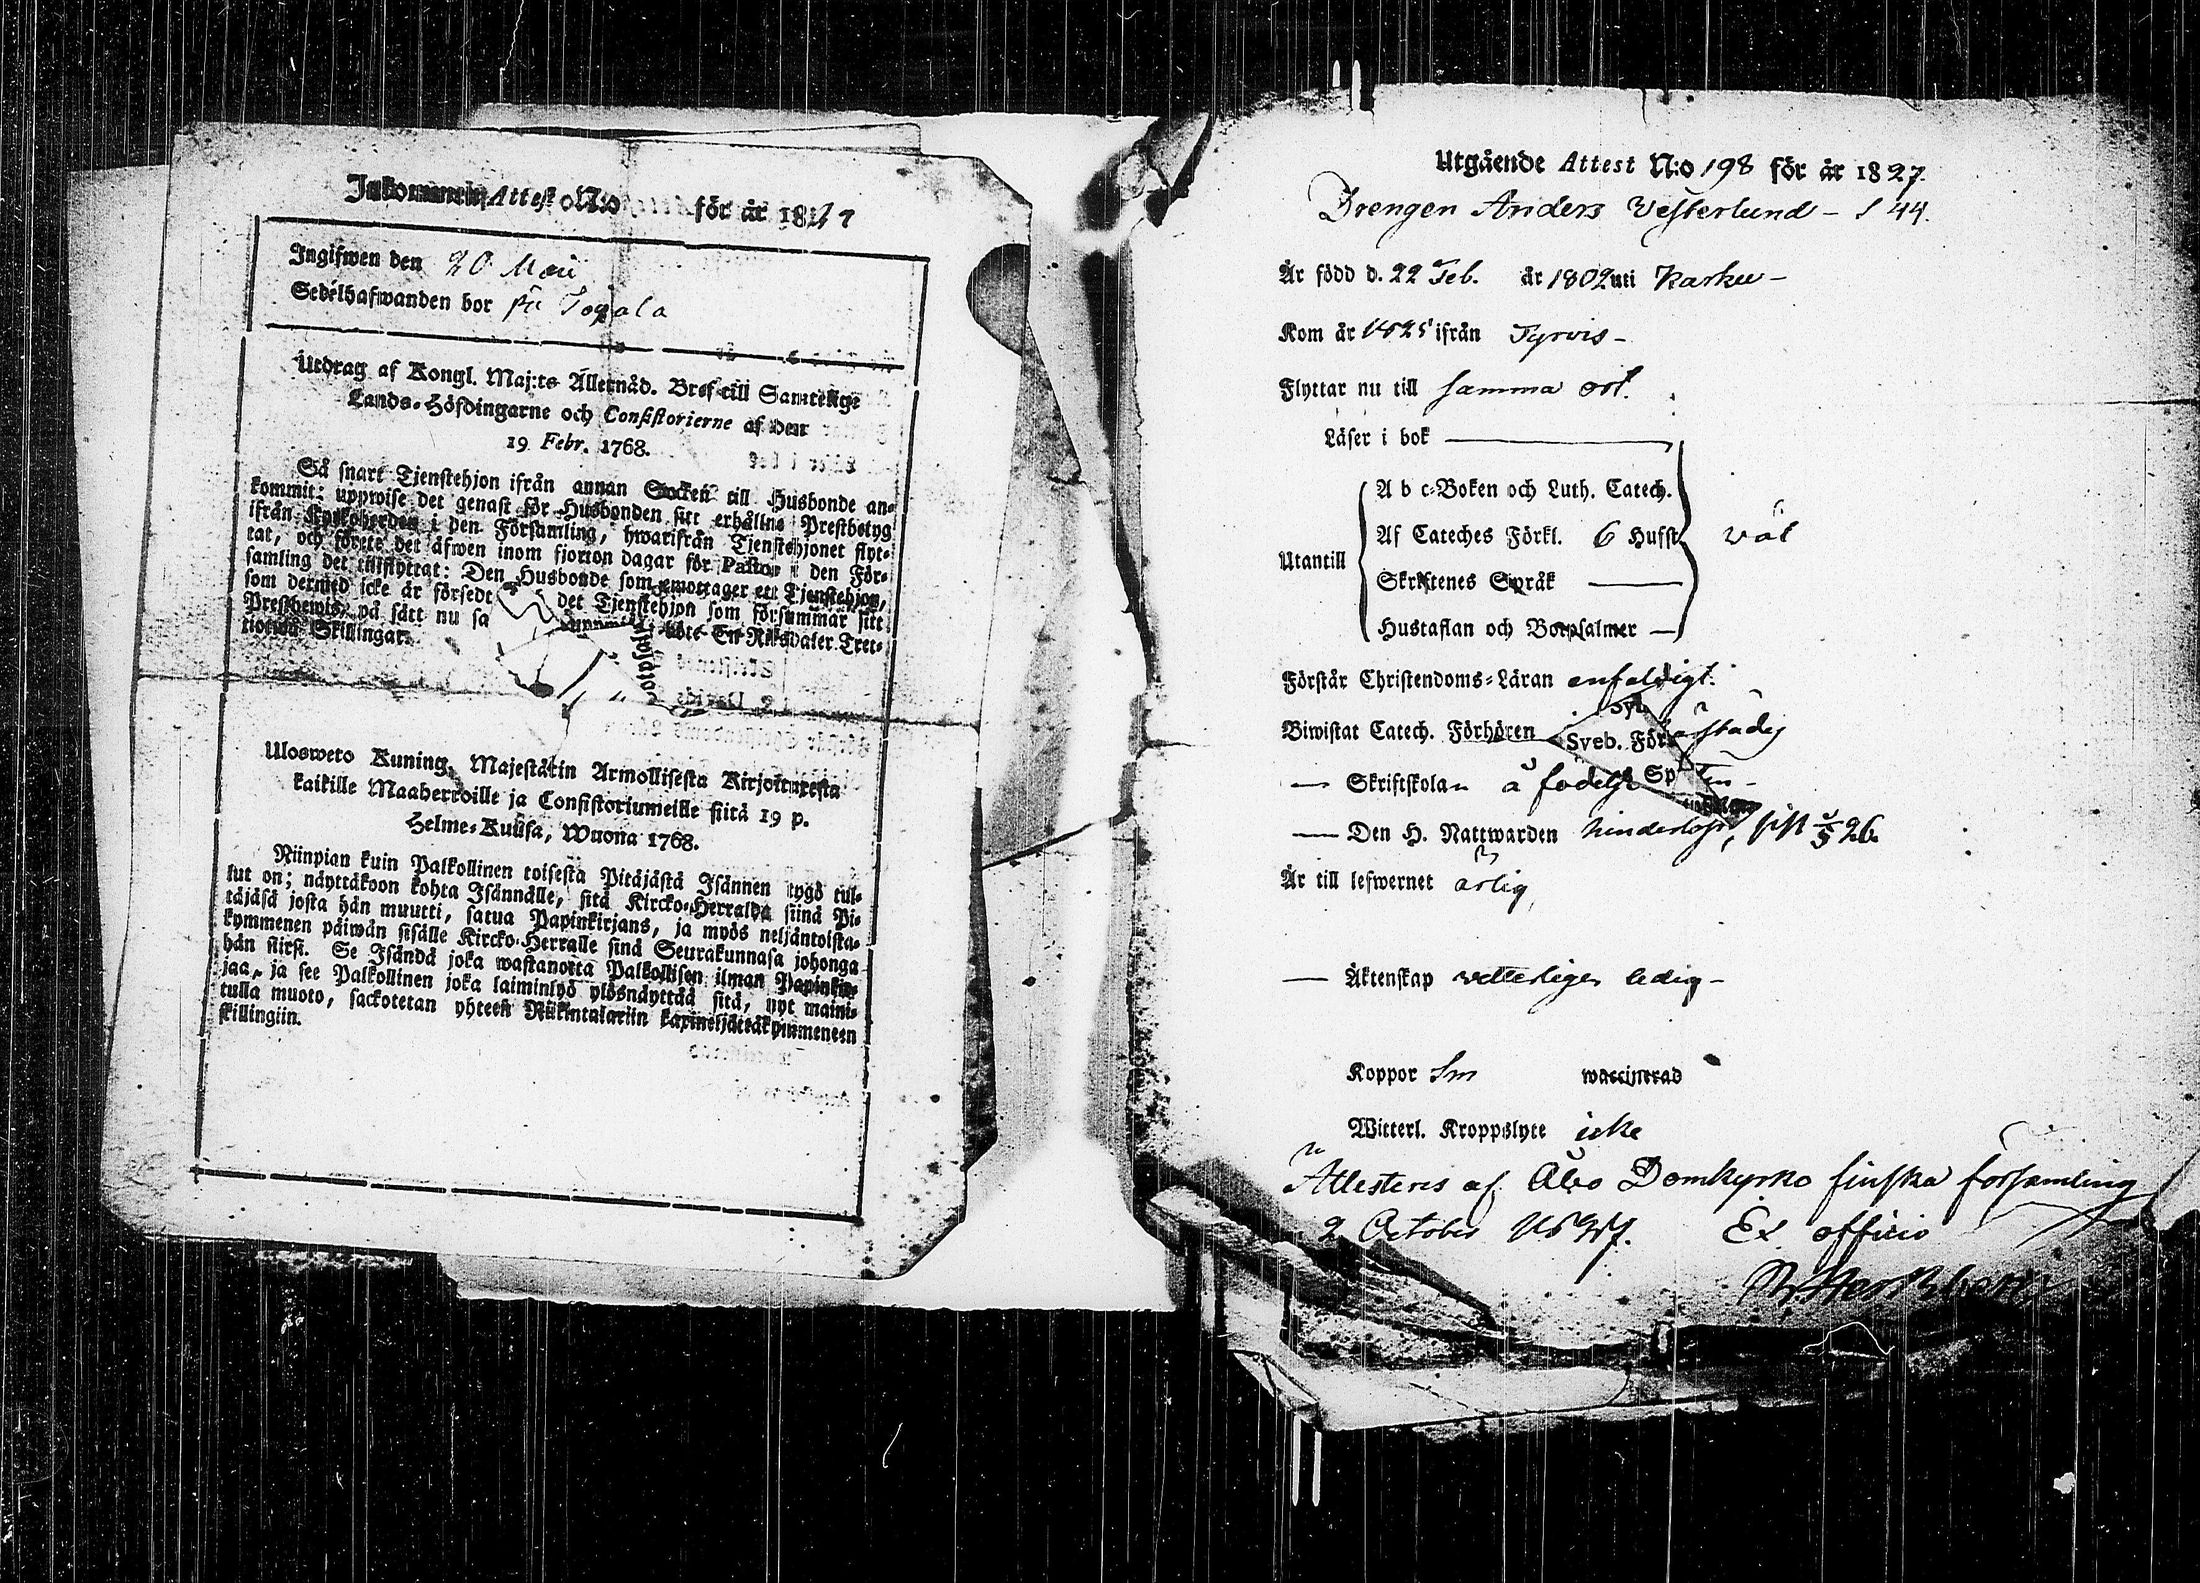 Inkommen Attest N:o för år 1827
Ingifwen den 20 Maii
Sedelhafwanden bor på
Utdrag af Kongl. Maj:ts Allernåd. Bref till Samtelige
Lands-Höfdingarne och Consistorierne af den
19 Febr. 1768.
Så snart Tjenstehjon ifrån annan Socken till Husbonde an-
kommit: uppwise det genast för Husbonden sitt erhållne Prestbetyg
ifrån Kyrkoherden i den Församling, hwarifrån Tjenstehjonet flyt-
tat, och förete det äfwen inom fjorton dagar för Pastor i den För-
samling det tillflyttat: Den Husbonde som emottager ett Tjenstehjon,
som dermed icke är försedt det Tjenstehjon som försummar sitt
Prestbewis på sätt nu sa böte En Riksdaler Tret-
tiotwå Skillingar.
Ulosweto Kuning. Majestätin Armollisesta Kirjoituxesta
kaikille Maaherroille ja Consistoriumeille siitä 19 p.
Helme-Kuusa, Wuona 1768.
Niinpian kuin Palkollinen toisesta Pitäjästä Isännen tygö tul-
lut on; näyttäkoon kohta Isännälle, sitä Kircko-Herralda siinä Pi-
täjäsä josta hän muutti, satua Papinkirjans, ja myös neljäntoista-
kymmenen päiwän sisälle Kircko-Herralle sinä Seurakunnasa johonga
hän siirsi. Se Isändä joka wastanotta Palkollisen ilman Papinkir-
jaa, ja see Palkollinen joka laiminlyö ylösnäyttää sitä, nyt maini-
tulla muoto, sackotetan yhteen Riikintalariin kaxineljättäkymmeneen
skillingiin.
Utgående Attest N:o 198 för år 1827.
Drengen Anders Vesterlund – S 44.
Är född d. 22 Feb. år 1802 uti Karku –
Kom år 1825 ifrån Tyrvis –
Flyttar nu till samma ort.
Läser i bok
A b c-Boken och Luth. Catech.
Af Cateches Förkl. 6 Hufst. väl
Utantill
Skriftenes Språk
Hustaflan och Botpsalmer
Förstår Christendoms-Läran enfaldigt.
Biwistat Catech. Förhören Sveb. För
— Skriftskolan å födelse Sp
— Den H. Nattwarden hinderlöst, sist 26.
Är till lefwernet ärlig
— Äktenskap vetterligen ledig –
Koppor waccinerad
Witterl. Kroppslyte icke
Attesteres af Åbo Domkyrko finska församling
2 October 1827. Ex officio